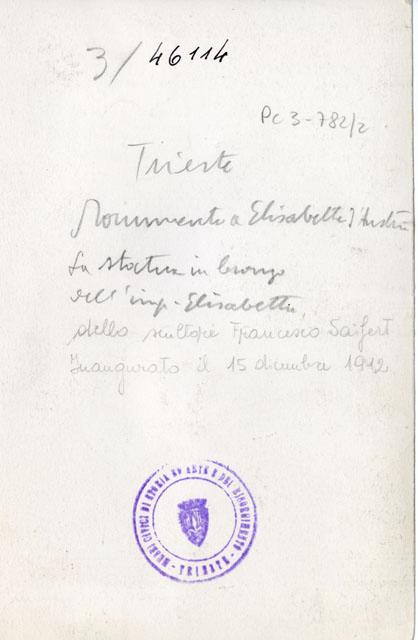 3/46114
Pc 3-782/2
Trieste
Monumento a Elisabetta d'Austria
La statua in bronzo
dell'imp. Elisabetta,
dello scultore Francesco Saifert
Inaugurato il 15 dicembre 1912
MUSEI CIVICI DI STORIA ED ARTE E DEL RISORGIMENTO - TRIESTE -